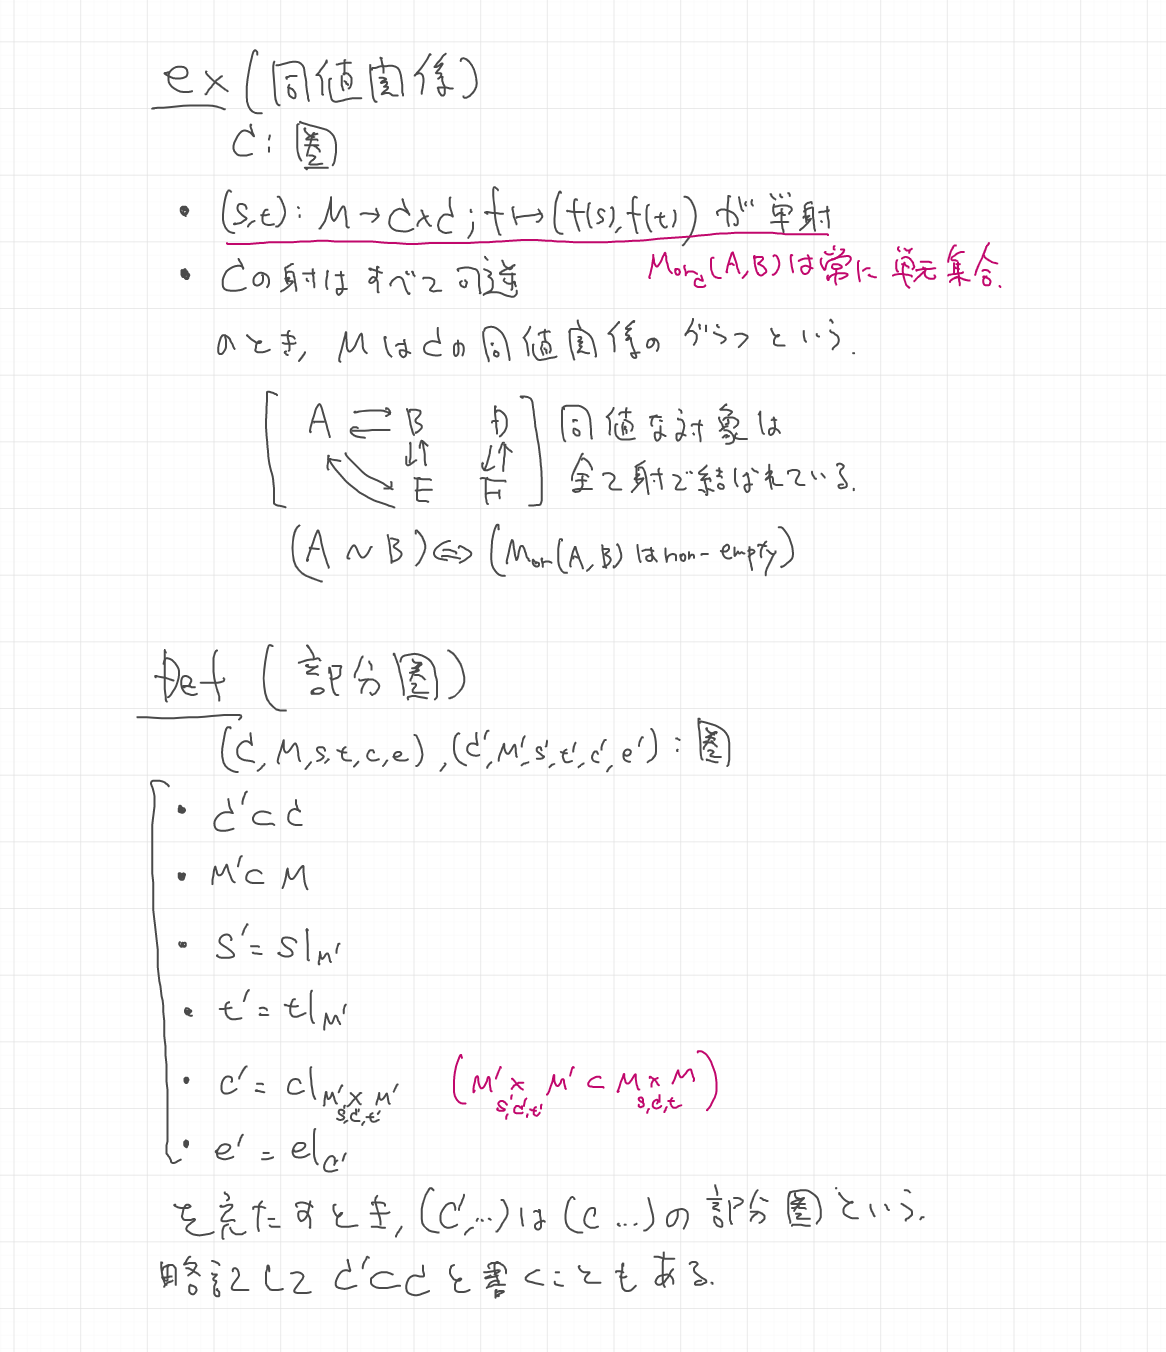 ex (同値関係)
C : 圏
・ (s,t) : M → C×C ; f ↦ (f(s), f(t)) が 単射
Mor_C(A,B) は常に 単元集合.
・ Cの射は すべて可逆
のとき, M は Cの 同値関係の グラフ という.
[ A ⇄ B D ] 同値な対象は
↓↑ ↓↑
E F 全て射で結ばれている.
(A ~ B) ⇔ (Mor(A,B) は non-empty)
Def (部分圏)
(C, M, s, t, c, e), (C', M', s', t', c', e') : 圏
・ C' ⊂ C
・ M' ⊂ M
・ s' = s|_{M'}
・ t' = t|_{M'}
・ c' = c|_{M' ×_{s',C',t'} M'} (M' ×_{s',C',t'} M' ⊂ M ×_{s,C,t} M)
・ e' = e|_{C'}
を充たすとき, (C',...) は (C ...) の 部分圏 という.
略記して C' ⊂ C と書くこともある.